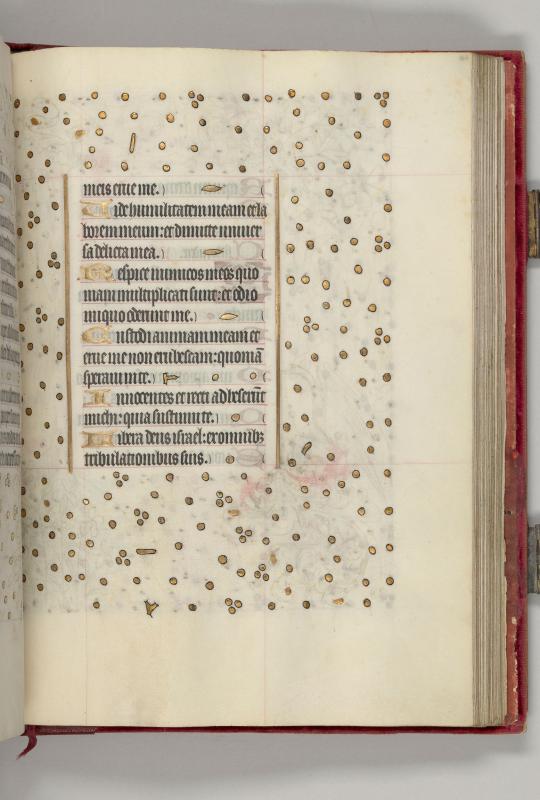 meis erue me.
Uide humilitatem meam et la
borem meum: et dimitte univer
sa delicta mea.
Respice inimicos meos quō
niam multiplicati sunt: et odio
iniquo oderunt me.
Custodi animam meam et
erue me non erubescam: quoniā
speravi in te.
Innocentes et recti adheserūt
michi: quia sustinui te.
Libera deus israel: ex omnibꝫ
tribulationibus suis.